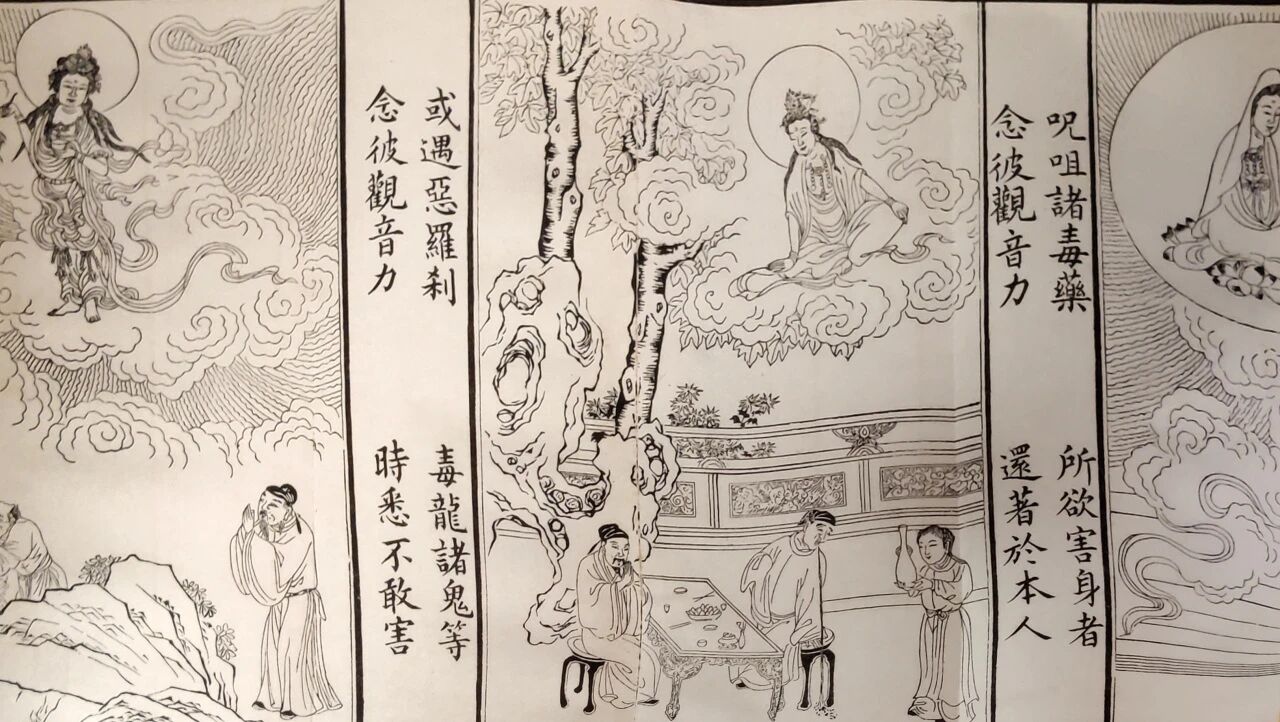 呪咀諸毒藥 所欲害身者
念彼觀音力 還著於本人
或遇惡羅剎 毒龍諸鬼等
念彼觀音力 時悉不敢害